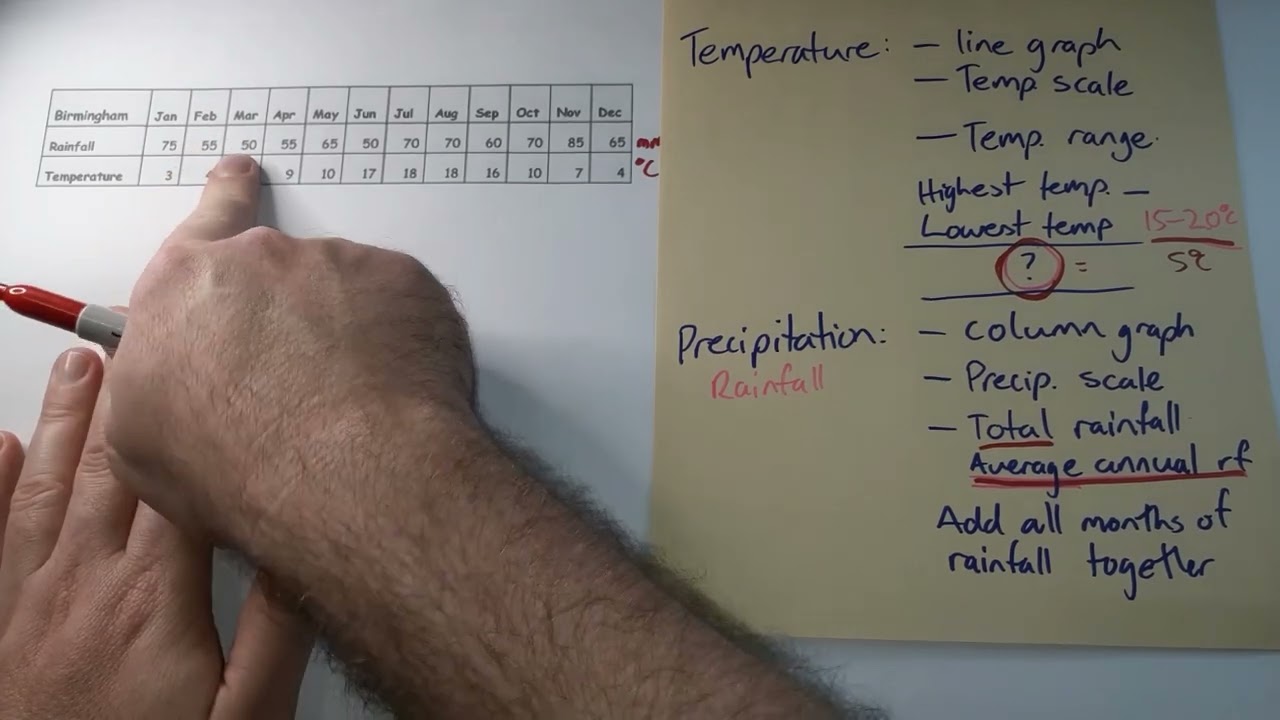 Birmingham Jan Feb Mar Apr May Jun Jul Aug Sep Oct Nov Dec
Rainfall 75 55 50 55 65 50 70 70 60 70 85 65 mm
Temperature 3 9 10 17 18 18 16 10 7 4 °C
Temperature: – line graph
– Temp. scale
– Temp. range.
Highest temp. –
Lowest temp 15-20°C
? = 5°C
Precipitation: – column graph
Rainfall – Precip. scale
– Total rainfall
Average annual rf
Add all months of
rainfall together